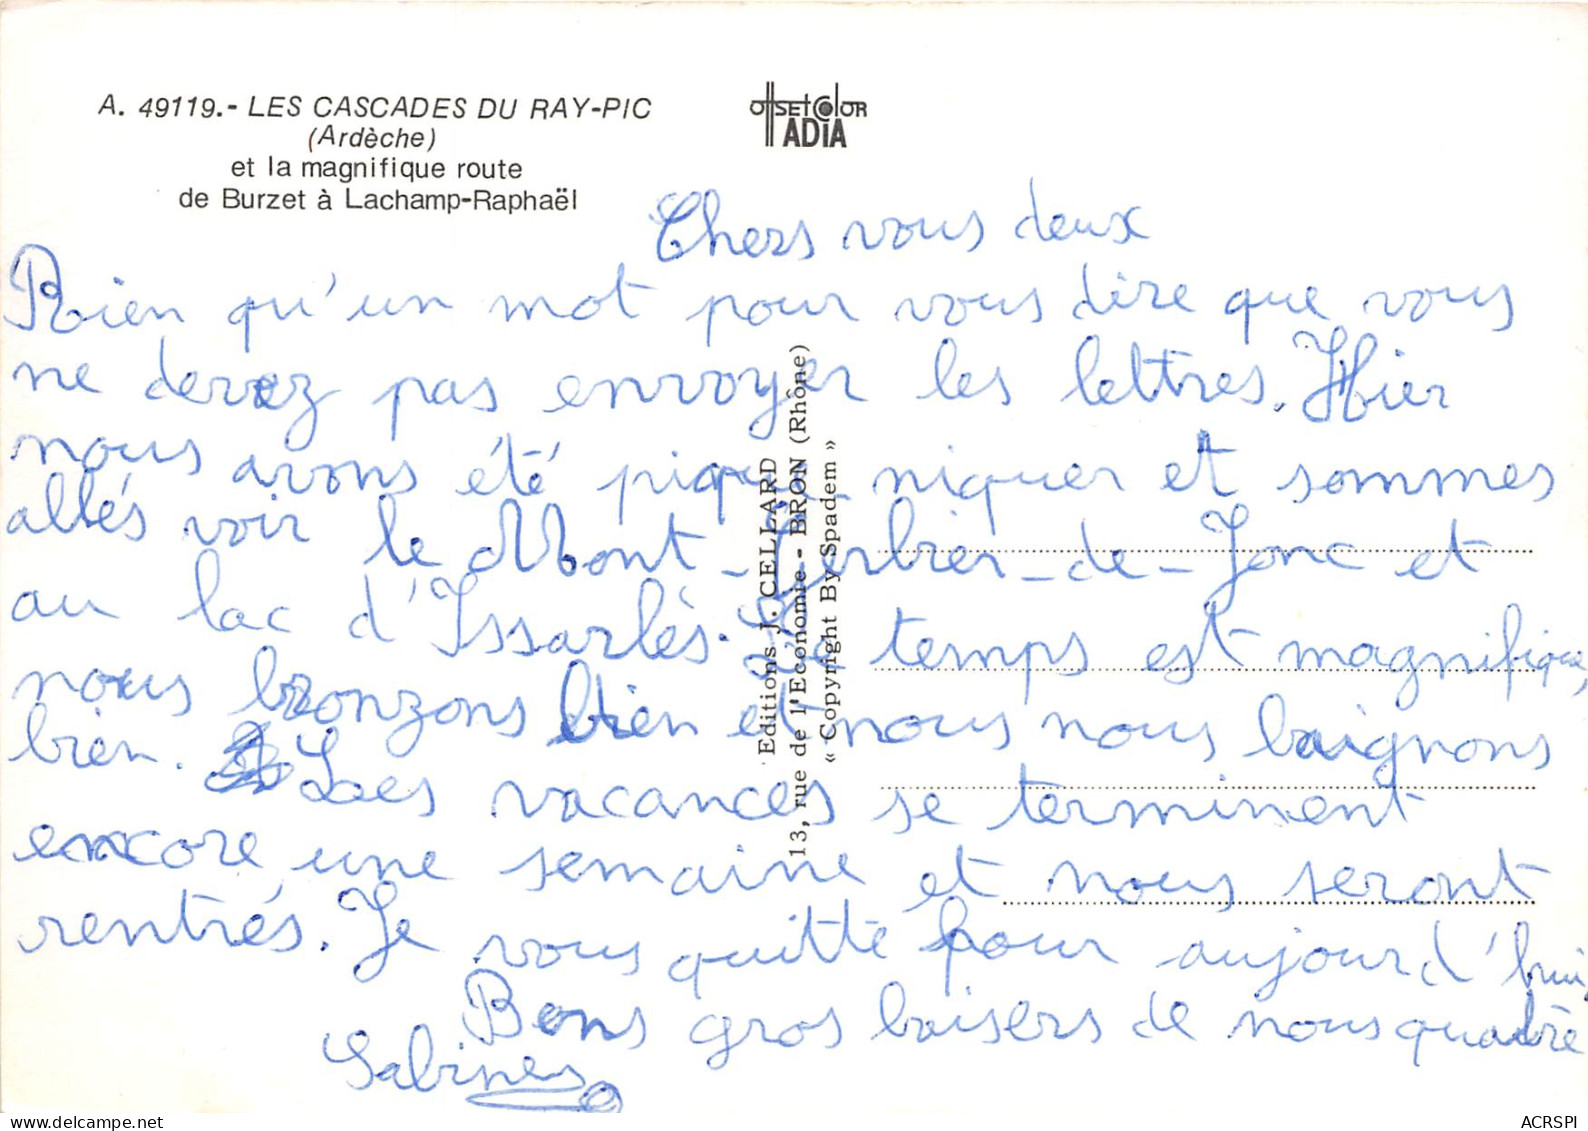 A. 49119.- LES CASCADES DU RAY-PIC
(Ardèche)
et la magnifique route
de Burzet à Lachamp-Raphaël
offset color
ADIA
Chers vous deux
Rien qu'un mot pour vous dire que vous
ne devez pas envoyer les lettres. Hier
nous avons été pique-niquer et sommes
allés voir le Mont-Gerbier-de-Jonc et
au lac d'Issarlès. Le temps est magnifique,
nous bronzons bien et nous nous baignons
bien. Les vacances se terminent
encore une semaine et nous seront
rentrés. Je vous quitte pour aujourd'hui,
Bons gros baisers de nous quatre
Sabines
Editions J. CELLARD
13, rue de l'Economie - BRON (Rhône)
« Copyright By Spadem »
ACRSPI